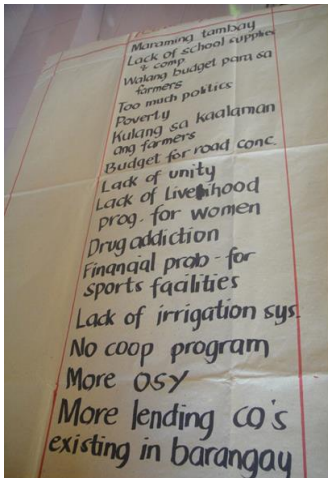 Maraming tambay
Lack of school supplies
& comp
Walang budget para sa
farmers
Too much politics
Poverty
Kulang sa kaalaman
ang farmers
Budget for road conc.
Lack of unity
Lack of livelihood
prog. for women
Drug addiction
Financial prob - for
sports facilities
Lack of irrigation sys.
No coop program
More OSY
More lending co's
existing in barangay